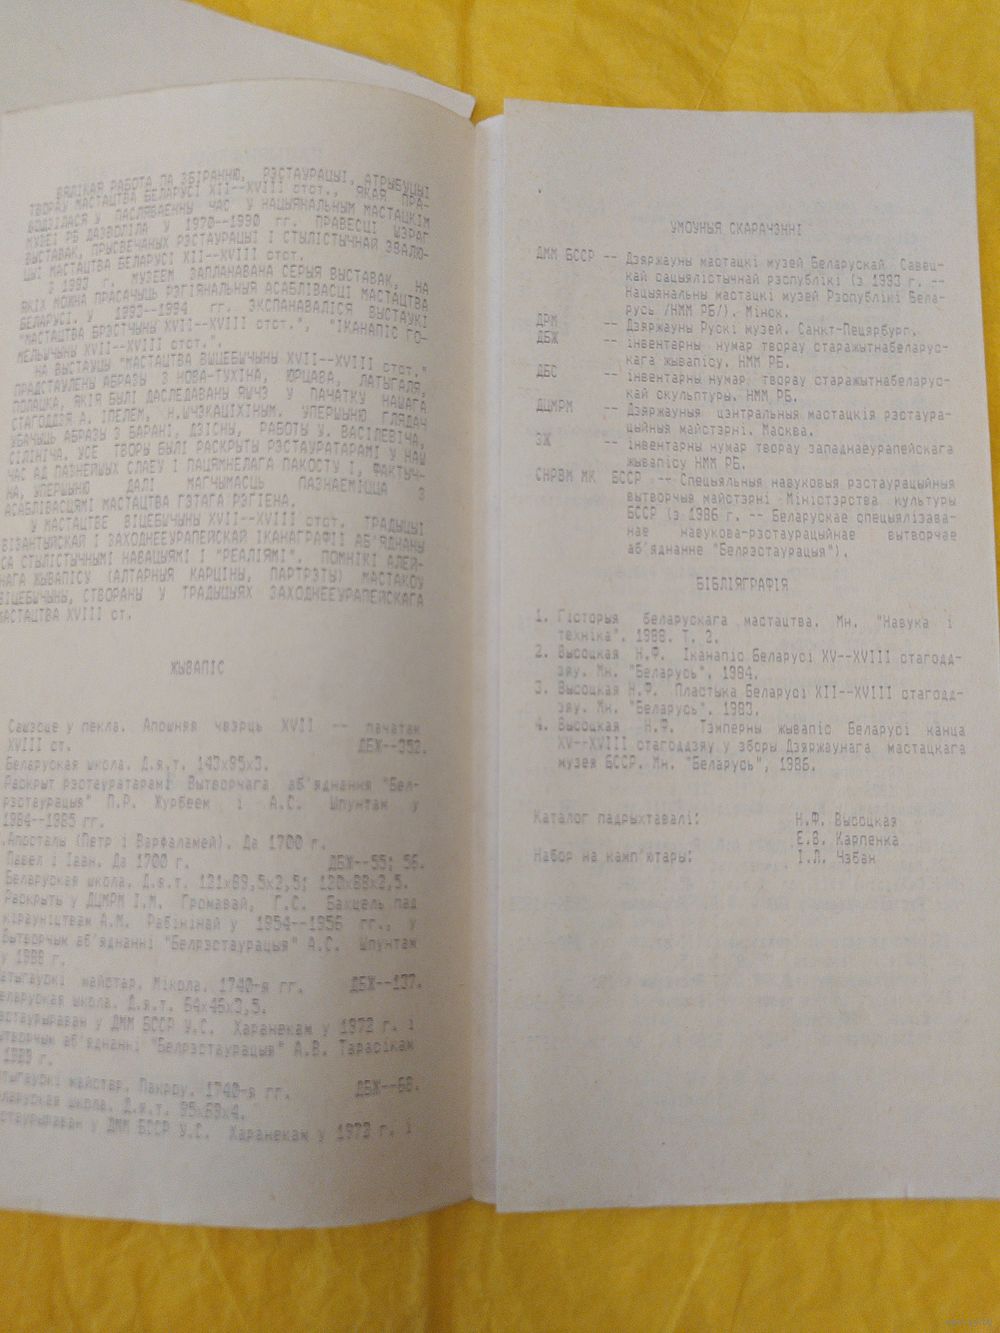 ВЯЛІКАЯ РАБОТА ПА ЗБІРАННЮ, РЭСТАУРАЦЫІ, АТРЫБУЦЫІ
ТВОРАУ МАСТАЦТВА БЕЛАРУСІ XII--XVIII стст., ЯКАЯ ПРА-
ВОДЗІЛАСЯ У ПАСЛЯВАЕННЫ ЧАС У НАЦЫЯНАЛЬНЫМ МАСТАЦКІМ
МУЗЕІ РБ ДАЗВОЛІЛА У 1970--1990 гг. ПРАВЕСЦІ ШЭРАГ
ВЫСТАВАК, ПРЫСВЕЧАНЫХ РЭСТАУРАЦЫІ І СТЫЛІСТЫЧНАЙ ЭВАЛЮ-
ЦЫІ МАСТАЦТВА БЕЛАРУСІ XII--XVIII стст.
З 1993 г. МУЗЕЕМ ЗАПЛАНАВАНА СЕРЫЯ ВЫСТАВАК, НА
ЯКІХ МОЖНА ПРАСАЧЫЦЬ РЭГІЯНАЛЬНЫЯ АСАБЛІВАСЦІ МАСТАЦТВА
БЕЛАРУСІ. У 1993--1994 гг. ЭКСПАНАВАЛІСЯ ВЫСТАУКІ
"МАСТАЦТВА БРЭСТЧЫНЫ XVII--XVIII стст.", "ІКАНАПІС ГО-
МЕЛЬШЧЫНЫ XVII--XVIII стст.".
НА ВЫСТАУЦЫ "МАСТАЦТВА ВІЦЕБШЧЫНЫ XVII--XVIII стст."
ПРАДСТАУЛЕНЫ АБРАЗЫ З НОВА-ТУХІНА, ЮРЦАВА, ЛАТЫГАЛЯ,
ПОЛАЦКА, ЯКІЯ БЫЛІ ДАСЛЕДАВАНЫ ЯШЧЭ У ПАЧАТКУ НАШАГА
СТАГОДДЗЯ А. ІПЕЛЕМ, УПЕРШЫНЮ ГЛЯДАЧ
УБАЧЫЦЬ АБРАЗЫ З БАРАНІ, ДЗІСНЫ, РАБОТЫ У. ВАСІЛЕВІЧА,
СІЛІНІЧА. УСЕ ТВОРЫ БЫЛІ РАСКРЫТЫ РЭСТАУРАТАРАМІ У НАШ
ЧАС АД ПАЗНЕЙШЫХ СЛАЕУ І ПАЦЯМНЕЛАГА ПАКОСТУ І, ФАКТЫЧ-
НА, УПЕРШЫНЮ ДАЛІ МАГЧЫМАСЦЬ ПАЗНАЕМІЦЦА З
АСАБЛІВАСЦЯМІ МАСТАЦТВА ГЭТАГА РЭГІЕНА.
У МАСТАЦТВЕ ВІЦЕБШЧЫНЫ XVII--XVIII стст. ТРАДЫЦЫІ
ВІЗАНТЫЙСКАЙ І ЗАХОДНЕЕУРАПЕЙСКАЙ ІКАНАГРАФІІ АБ'ЯДНАНЫ
СА СТЫЛІСТЫЧНЫМІ НАВАЦЫЯМІ І "РЕАЛІЯМІ". ПОМНІКІ АЛЕЙ-
НАГА ЖЫВАПІСУ (АЛТАРНЫЯ КАРЦІНЫ, ПАРТРЭТЫ) МАСТАКОУ
ВІЦЕБШЧЫНЫ, СТВОРАНЫ У ТРАДЫЦЫЯХ ЗАХОДНЕЕУРАПЕЙСКАГА
МАСТАЦТВА XVIII ст.
ЖЫВАПІС
Сашэсце у пекла. Апошняя чвэрць XVII -- пачатак
XVIII ст. ДБЖ--352.
Беларуская школа. Д.я.т. 143х95х3.
Раскрыт рэстауратарамі Вытворчага аб'яднання "Бел-
рэстаурацыя" П.Р. Журбеем і А.С. Шпунтам у
1984--1985 гг.
Апосталы (Петр і Варфаламей). Да 1700 г.
Павел і Іван. Да 1700 г. ДБЖ--55; 56.
Беларуская школа. Д.я.т. 121х89,5х2,5; 120х88х2,5.
Раскрыты у ДЦМРМ І.М. Громавай, Г.С. Бакцель пад
кірауніцтвам А.М. Рабінінай у 1954--1956 гг., у
Вытворчым аб'яднанні "Белрэстаурацыя" А.С. Шпунтам
у 1988 г.
майстар. Мікола. 1740-я гг. ДБЖ--137.
Беларуская школа. Д.я.т. 64х46х3,5.
Рэстаурыраван у ДММ БССР У.С. Харанекам у 1972 г. і
Вытворчым аб'яднанні "Белрэстаурацыя" А.В. Тарасікам
1989 г.
майстар. Пакроу. 1740-я гг. ДБЖ--68.
Беларуская школа. Д.я.т. 95х69х4.
Рэстаурыраван у ДММ БССР У.С. Харанекам у 1972 г. і
УМОУНЫЯ СКАРАЧЭННІ
ДММ БССР -- Дзяржауны мастацкі музей Беларускай Савец-
кай сацыялістычнай рэспублікі (з 1993 г. --
Нацыянальны мастацкі музей Рэспублікі Бела-
русь /НММ РБ/). Мінск.
ДРМ -- Дзяржауны Рускі музей. Санкт-Пецярбург.
ДБЖ -- інвентарны нумар творау старажытнабеларус-
кага жывапісу. НММ РБ.
ДБС -- інвентарны нумар творау старажытнабеларус-
кай скульптуры. НММ РБ.
ДЦМРМ -- Дзяржауныя цэнтральныя мастацкія рэстаура-
цыйныя майстэрні. Масква.
ЗЖ -- інвентарны нумар творау западнаеурапейскага
жывапісу НММ РБ.
СНРВМ МК БССР -- Спецыяльныя навуковыя рэстаурацыйныя
вытворчыя майстэрні Міністэрства культуры
БССР (з 1986 г. -- Беларускае спецыялізава-
нае навукова-рэстаурацыйнае вытворчае
аб'яднанне "Белрэстаурацыя").
БІБЛІЯГРАФІЯ
1. Гісторыя беларускага мастацтва. Мн. "Навука і
тэхніка". 1988. Т. 2.
2. Высоцкая Н.Ф. Іканапіс Беларусі XV--XVIII стагодд-
зяу. Мн. "Беларусь". 1984.
3. Высоцкая Н.Ф. Пластыка Беларусі XII--XVIII стагодд-
зяу. Мн. "Беларусь". 1983.
4. Высоцкая Н.Ф. Тэмперны жывапіс Беларусі канца
XV--XVIII стагоддзяу у зборы Дзяржаунага мастацкага
музея БССР. Мн. "Беларусь", 1986.
Каталог падрыхтавалі: Н.Ф. Высоцкая
Е.В. Карпенка
Набор на камп'ютары: І.Л. Чэбан